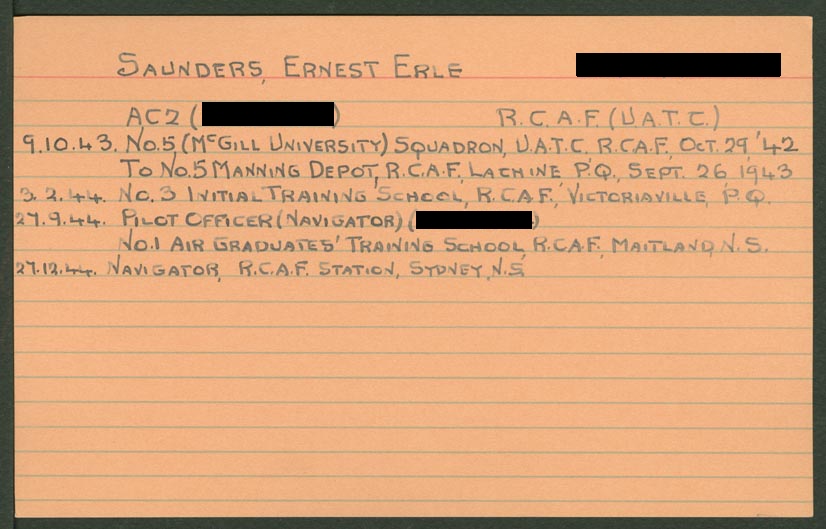 SAUNDERS, ERNEST ERLE
AC2 ( ) R.C.A.F. (U.A.T.C.)
9.10.43. NO.5 (McGILL UNIVERSITY) SQUADRON, U.A.T.C. R.C.A.F. OCT. 29 '42
TO NO.5 MANNING DEPOT, R.C.A.F. LACHINE P.Q., SEPT. 26 1943
3.2.44. NO. 3 INITIAL TRAINING SCHOOL, R.C.A.F. VICTORIAVILLE, P.Q.
27.9.44. PILOT OFFICER (NAVIGATOR) ( )
NO.1 AIR GRADUATES' TRAINING SCHOOL, R.C.A.F. MAITLAND, N.S.
27.12.44. NAVIGATOR, R.C.A.F. STATION, SYDNEY, N.S.